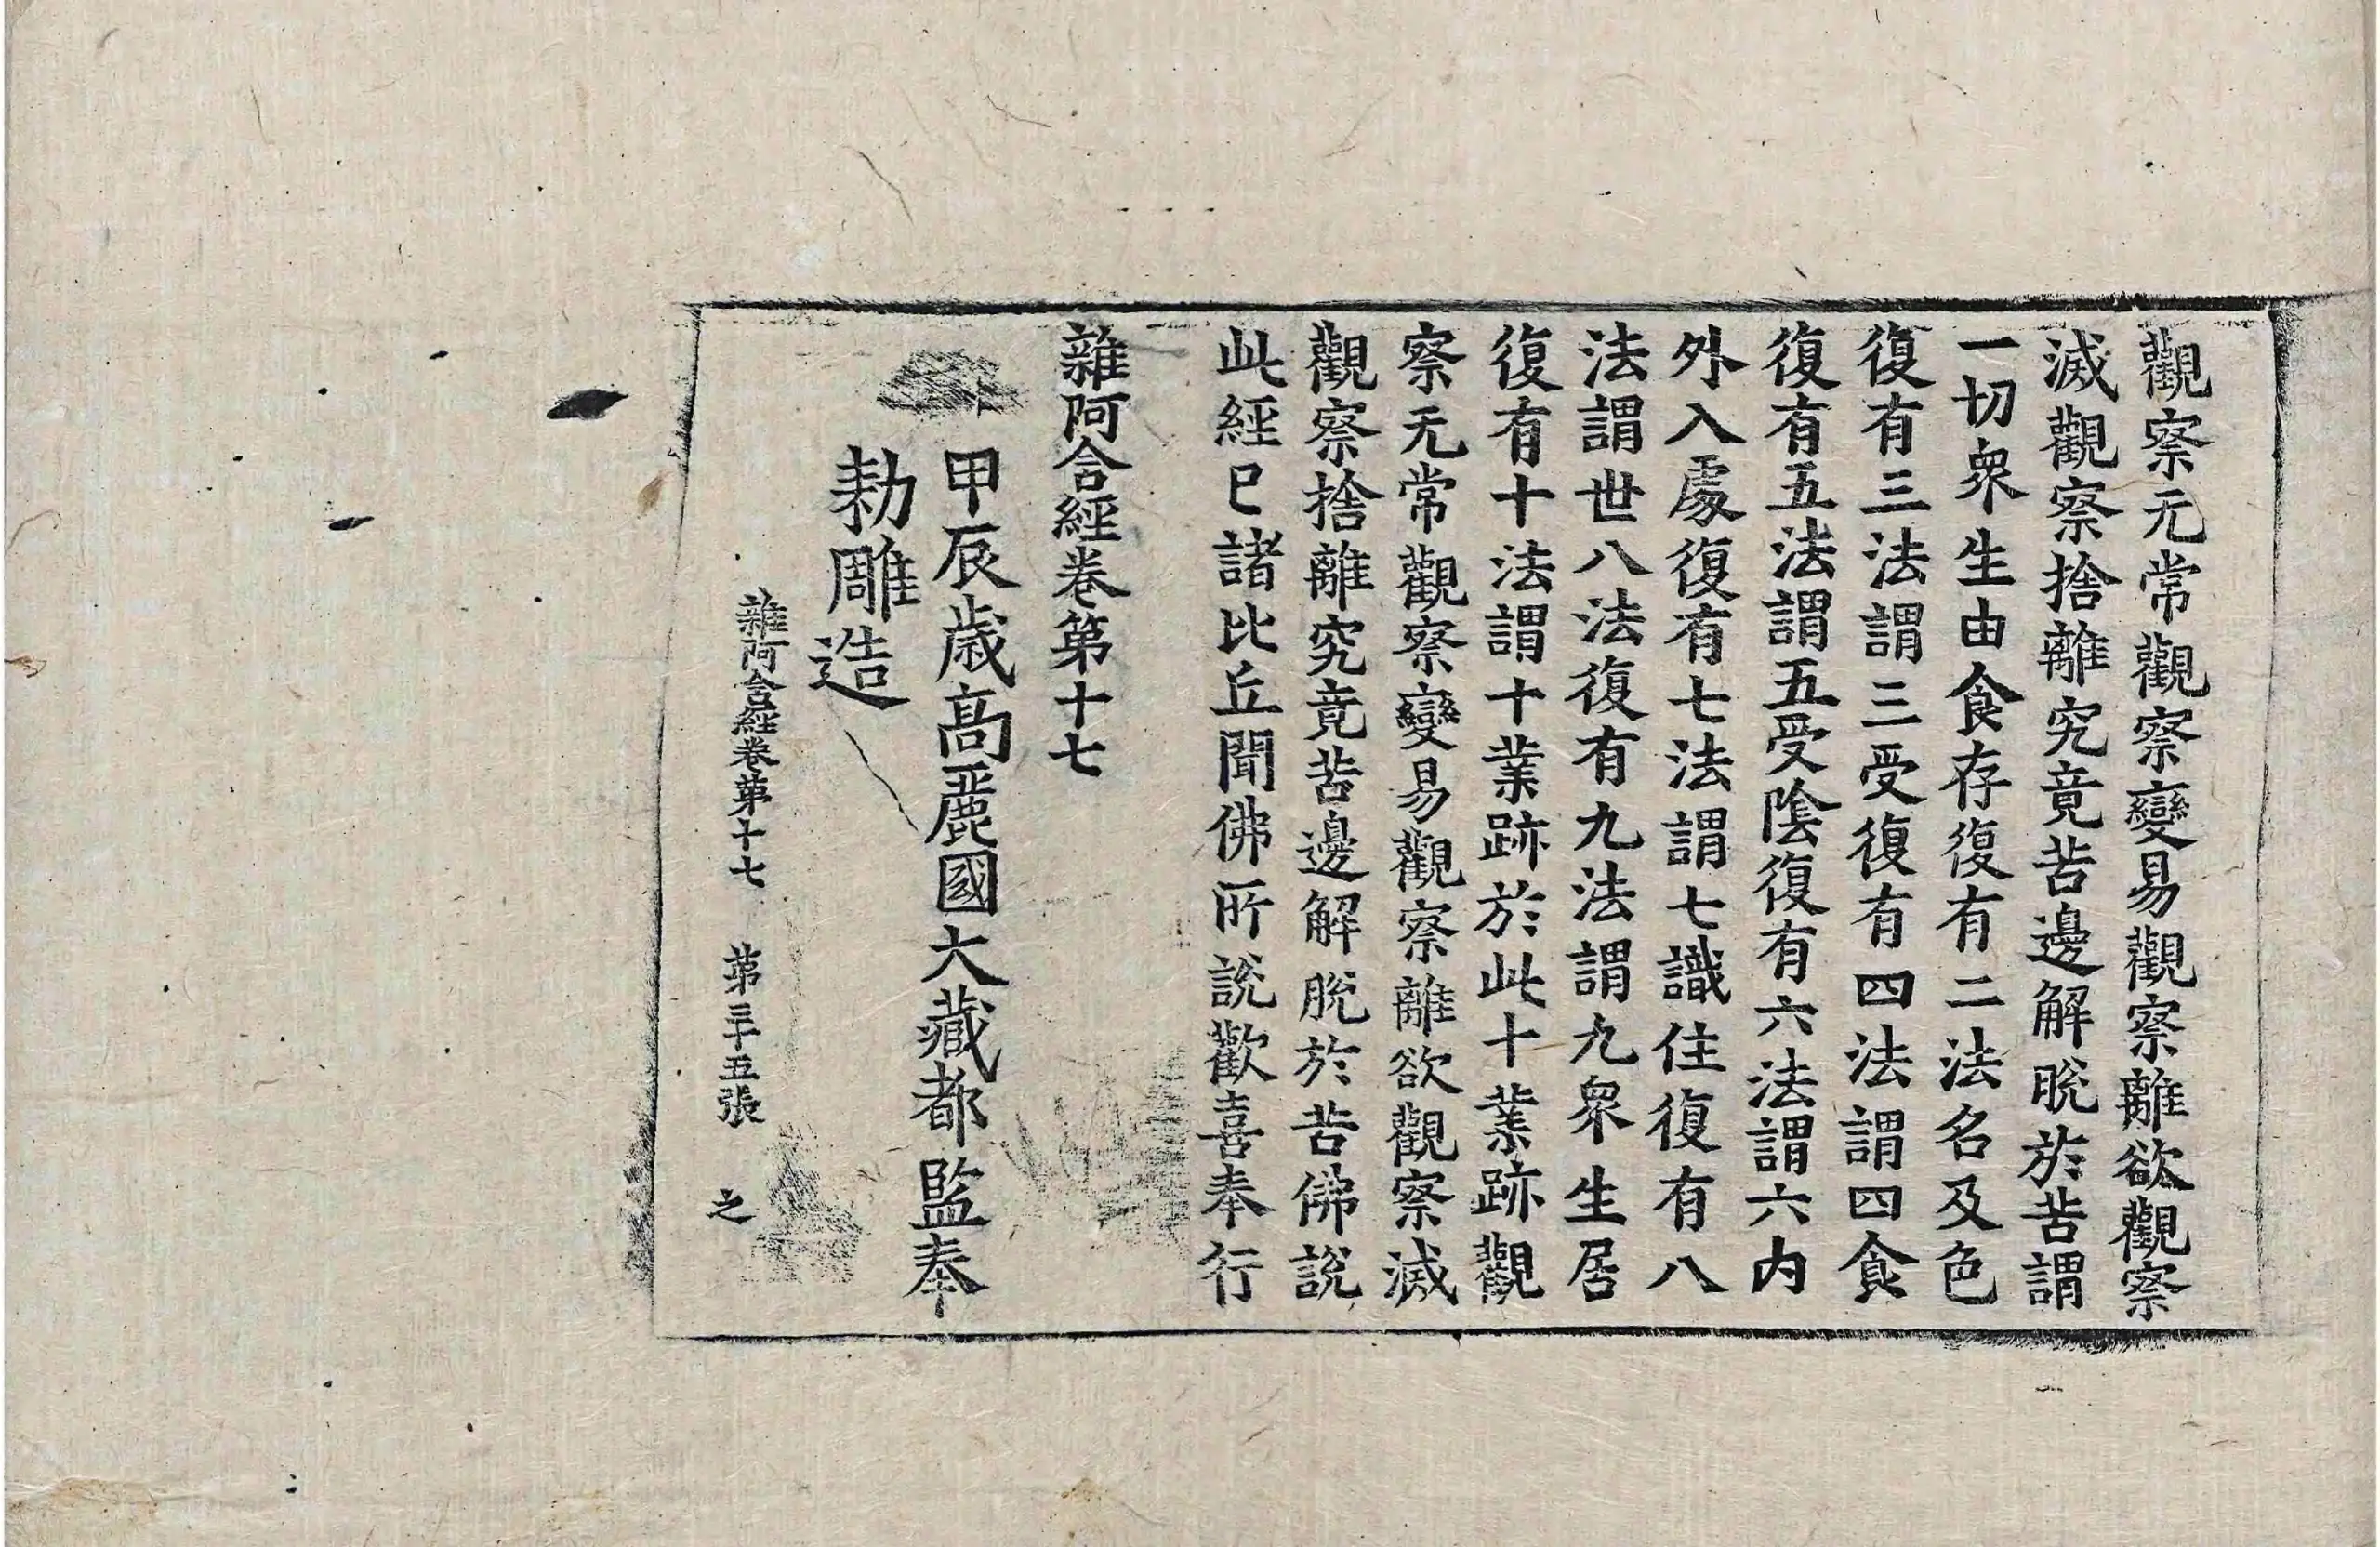 觀察无常觀察變易觀察離欲觀察
滅觀察捨離究竟苦邊解脫於苦謂
一切衆生由食存復有二法名及色
復有三法謂三受復有四法謂四食
復有五法謂五受陰復有六法謂六内
外入處復有七法謂七識住復有八
法謂世八法復有九法謂九衆生居
復有十法謂十業跡於此十業跡觀
察无常觀察變易觀察離欲觀察滅
觀察捨離究竟苦邊解脫於苦佛說
此經已諸比丘聞佛所說歡喜奉行
雜阿含經卷第十七
甲辰歳高麗國大藏都監奉
勑雕造
雜阿含經卷第十七 第三十五張 之